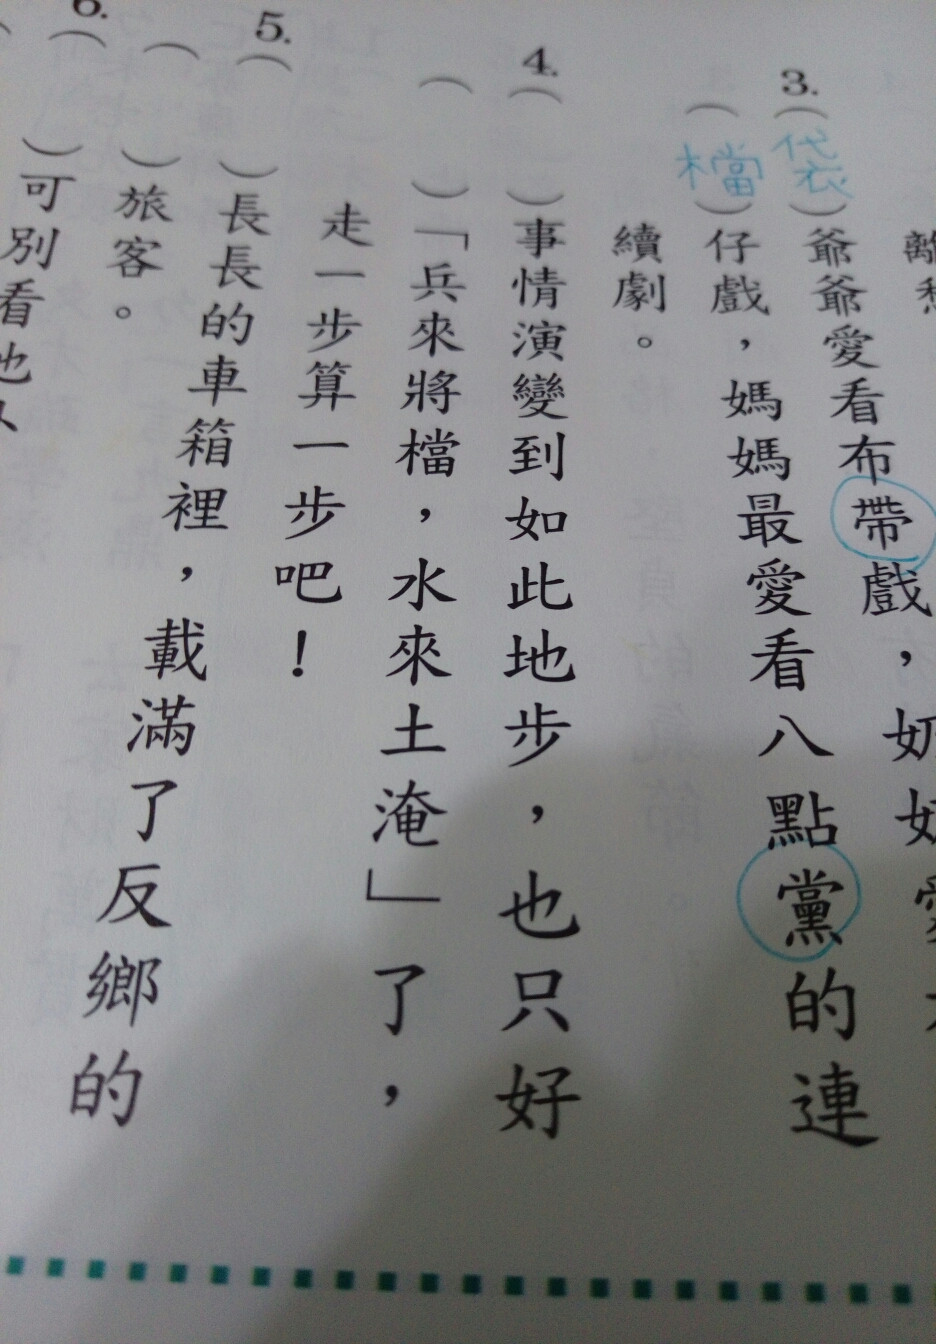 離愁
3.（袋）爺爺愛看布帶戲，奶奶愛
（檔）仔戲，媽媽最愛看八點黨的連
續劇。
4.（　）事情演變到如此地步，也只好
（　）「兵來將檔，水來土淹」了，
走一步算一步吧！
5.（　）長長的車箱裡，載滿了反鄉的
（　）旅客。
6.（　）可別看他